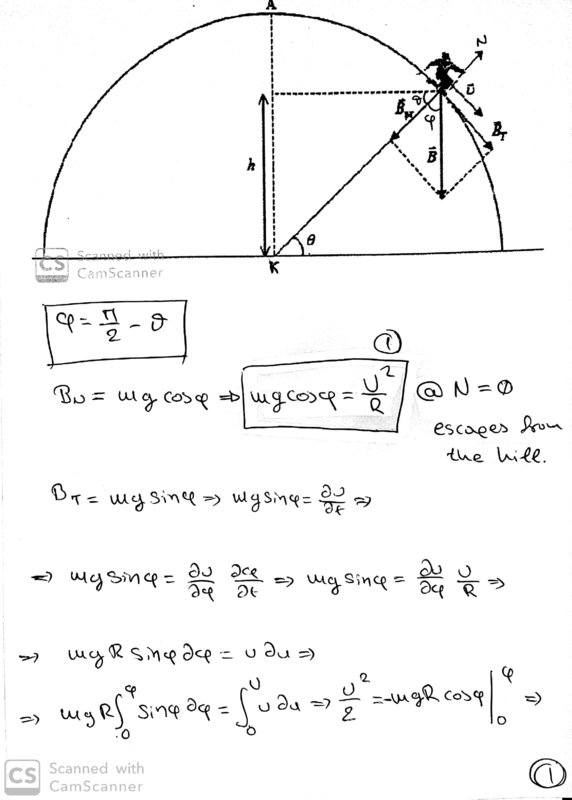 A
N
υ
B_N
θ
φ
B_T
B
h
θ
K
CS Scanned with
CamScanner
φ = π/2 - θ
①
B_N = mg cosφ ⇒ mg cosφ = υ²/R @ N = 0
escapes from
the hill.
B_T = mg sinφ ⇒ mg sinφ = ∂υ/∂t ⇒
⇒ mg sinφ = ∂υ/∂φ ∂φ/∂t ⇒ mg sinφ = ∂υ/∂φ υ/R ⇒
⇒ mg R sinφ ∂φ = υ ∂υ ⇒
⇒ mg R ∫₀^φ sinφ ∂φ = ∫₀^υ υ ∂υ ⇒ υ²/2 = -mgR cosφ |₀^φ ⇒
①
CS Scanned with
CamScanner